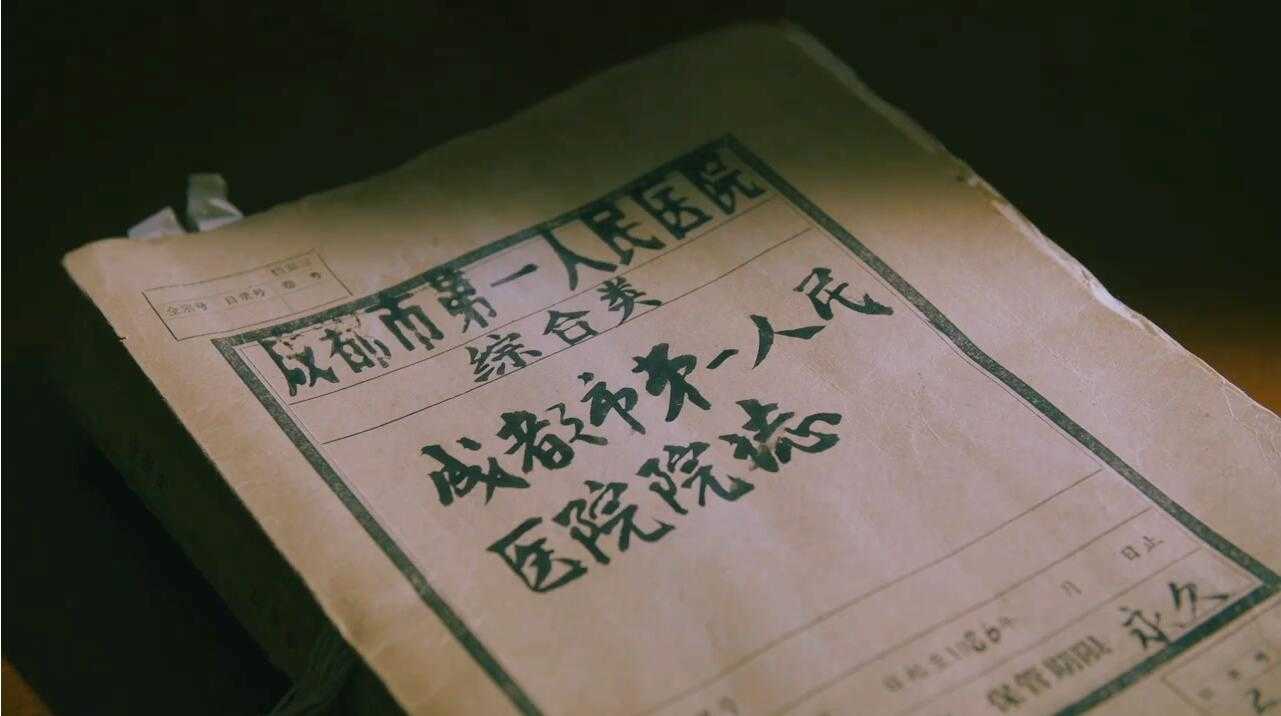 全宗号 目录号 卷号
成都市第一人民医院
综合类
成都市第一人民
医院院志
月 日止
保管期限 永久